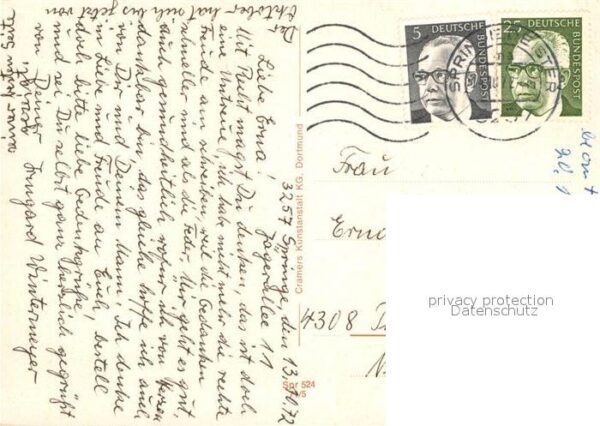 3257 Springe, den 13.10.72
Jägerallee 11
Liebe Erna!
Mit Recht magst Du denken, das ist doch
eine Untreue, ich habe nicht mehr die rechte
Freude am schreiben, weil die Gedanken
schneller sind als die Feder. Mir geht es gut,
auch gesundheitlich wofür ich von Herzen
dankbar bin, das gleiche hoffe ich auch
von Dir und Deinem Mann. Ich denke
in Liebe und Freude an Euch, bestell
doch bitte liebe Gedenkgrüße,
und sei Du selbst ganz herzlich gegrüßt
von Deiner Irmgard Wintermeyer
Der
Oktober hat sich bis jetzt von
seiner besten Seite
Cramers Kunstanstalt KG, Dortmund
Spr 524
5
DEUTSCHE
BUNDESPOST
25
DEUTSCHE
BUNDESPOST
SPRINGE
Frau
4308
privacy protection
Datenschutz